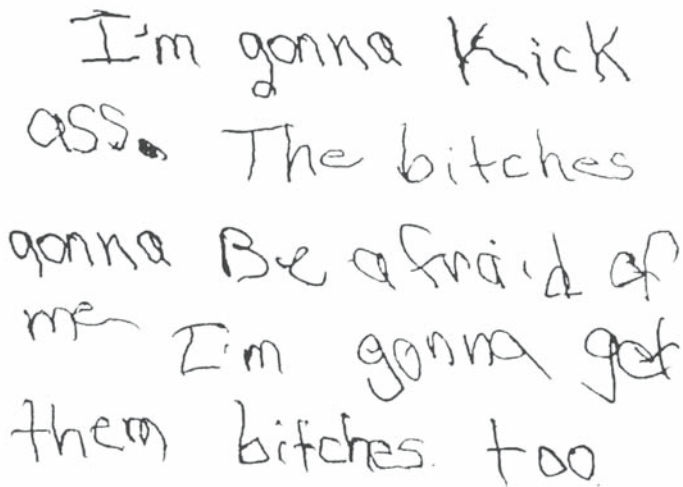 I'm gonna Kick
ass. The bitches
gonna Be afraid of
me I'm gonna get
them bitches too